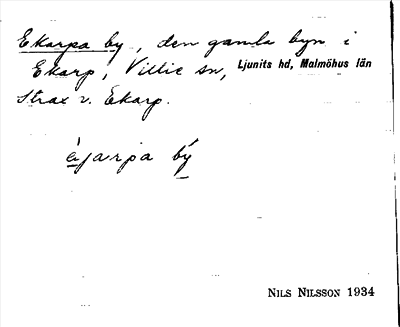 Ekarpa by, den gamla byn i
Ekarp, Villie sn, Ljunits hd, Malmöhus län
Strax v. Ekarp.
èjarpa bý
NILS NILSSON 1934